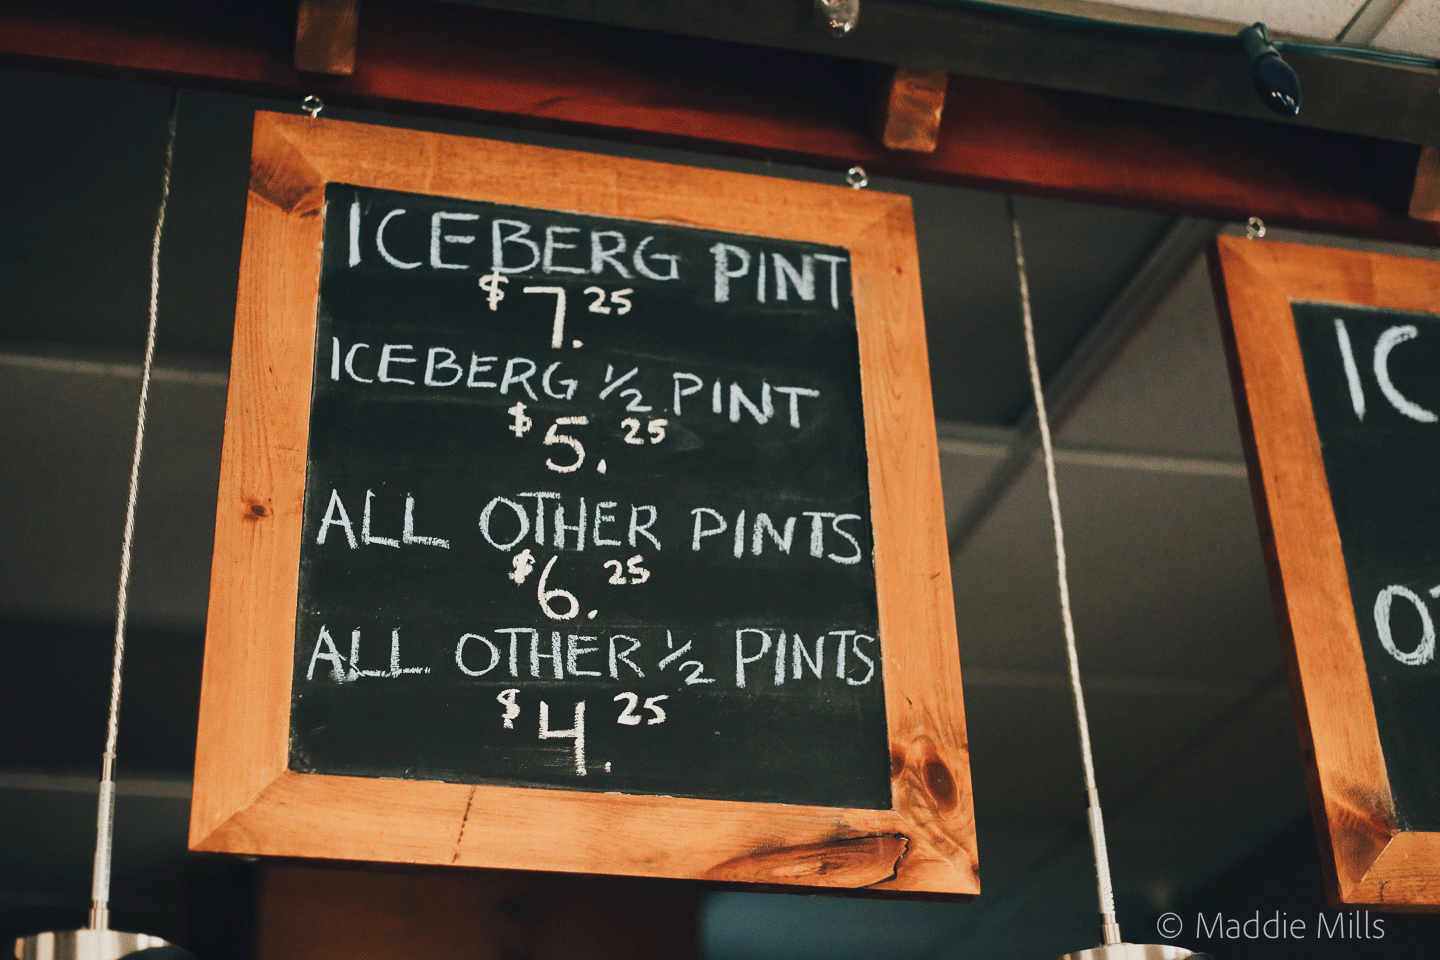 ICEBERG PINT
$7.25
ICEBERG 1/2 PINT
$5.25
ALL OTHER PINTS
$6.25
ALL OTHER 1/2 PINTS
$4.25
IC
© Maddie Mills